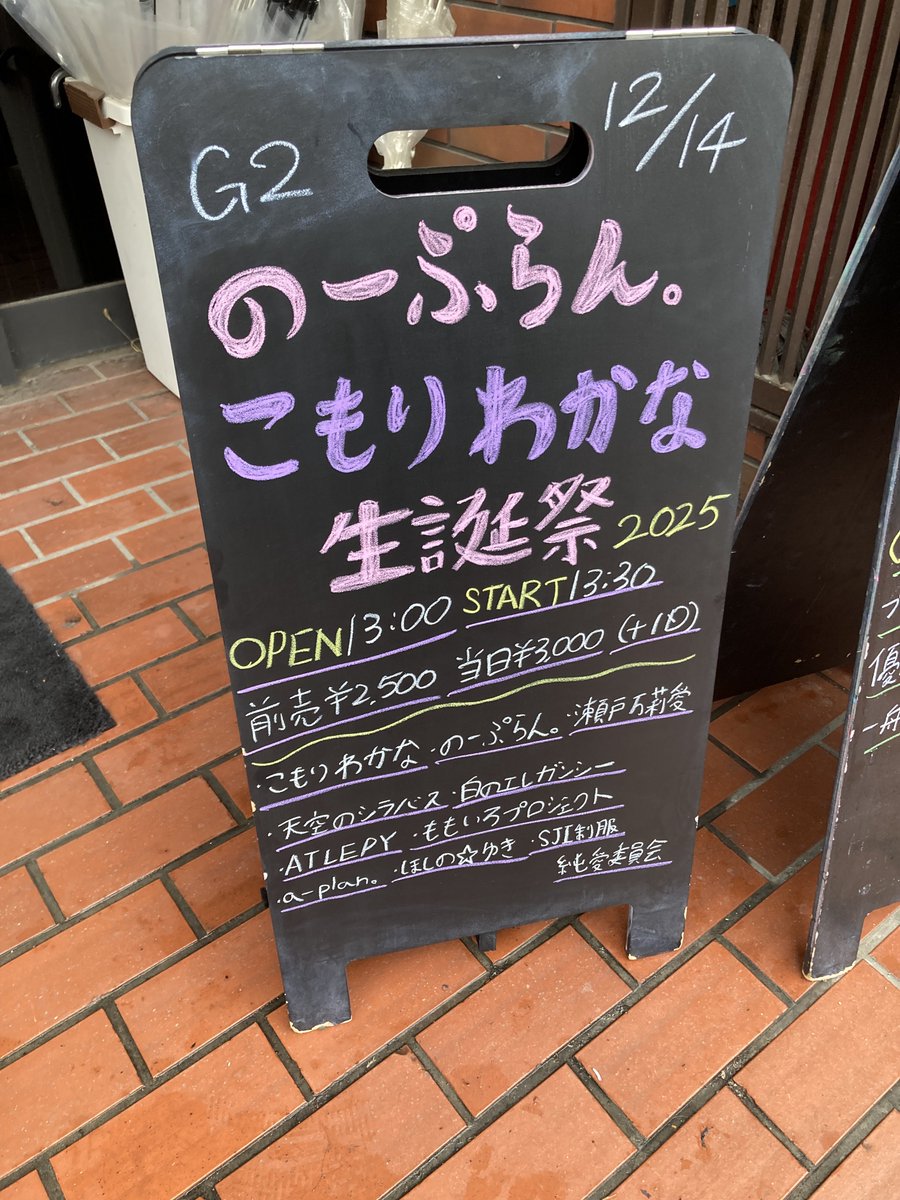 G2 12/14
のーぷらん。
こもりわかな
生誕祭 2025
OPEN 13:00 START 13:30
前売¥2,500 当日¥3,000 (+1D)
・こもりわかな ・のーぷらん。 ・瀬戸万莉愛
・天空のシラバス ・白のエレガンシー
・ATLEPY ・ももいろプロジェクト
・a-plan。 ・ほしの☆ゆき ・SJI制服
純愛委員会
優
一舟